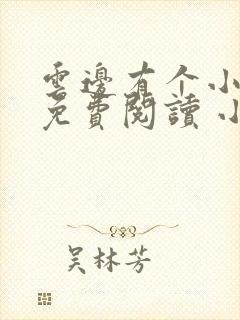 雲邊有个小
免費閱讀 小
吴林芳